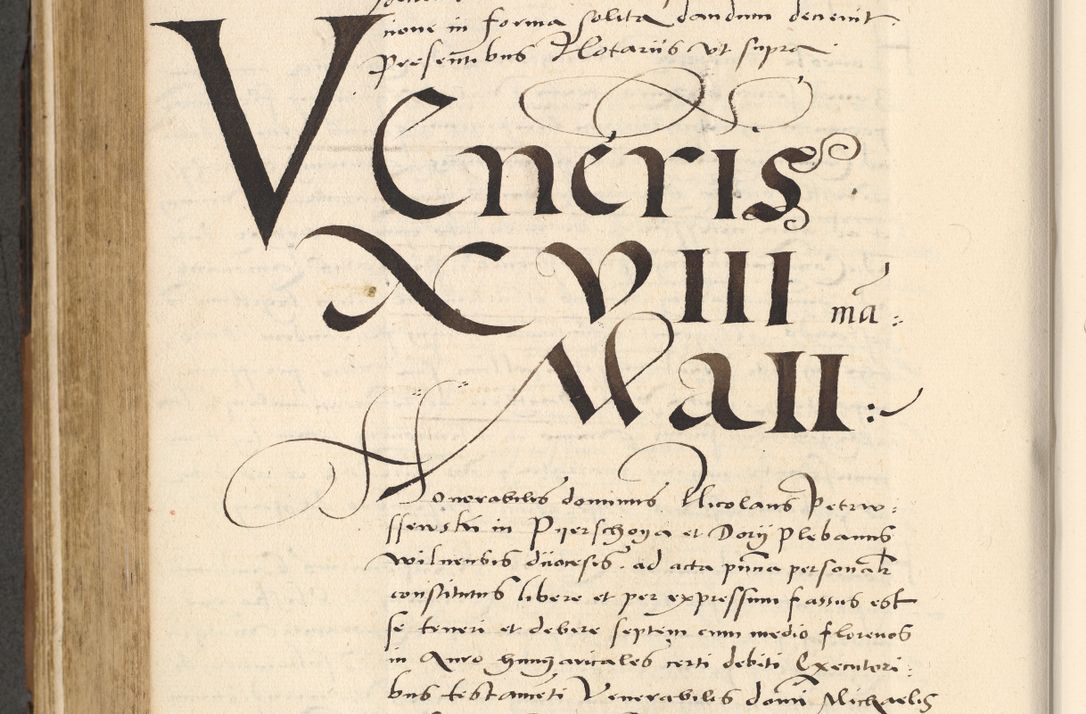 tione in forma solita dandum decreuit.
Presentibus Notariis vt supra
VEneris
XVIII ma:
Maii:
Honorabilis dominus Nicolaus Petrw:
ssewski in Pyerschoya et Dorij plebanus
wilnensis diiocesis. ad acta pnna personalr
constitutus libere et per expressum fassus est
se teneri et debere septem cum medio florenos
in Auro hungaricales certi debiti Executori:
bus testameti Venerabilis domi Michaelis